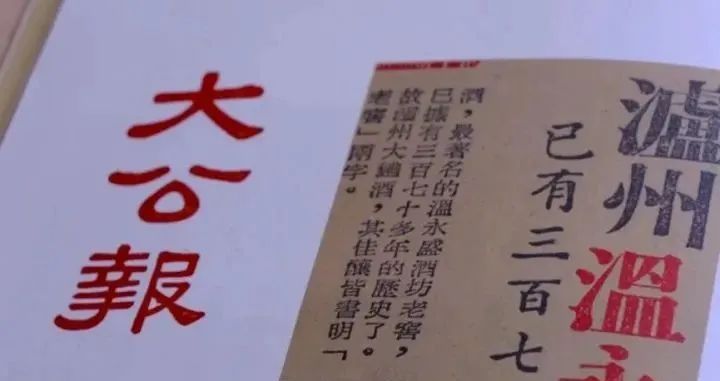 大公報
瀘州溫永
已有三百七
酒，最著名的溫永盛酒坊老窖，
已據有三百七十多年的歷史了。
故瀘州大麯酒，其佳釀皆書明「
老窖」兩字。